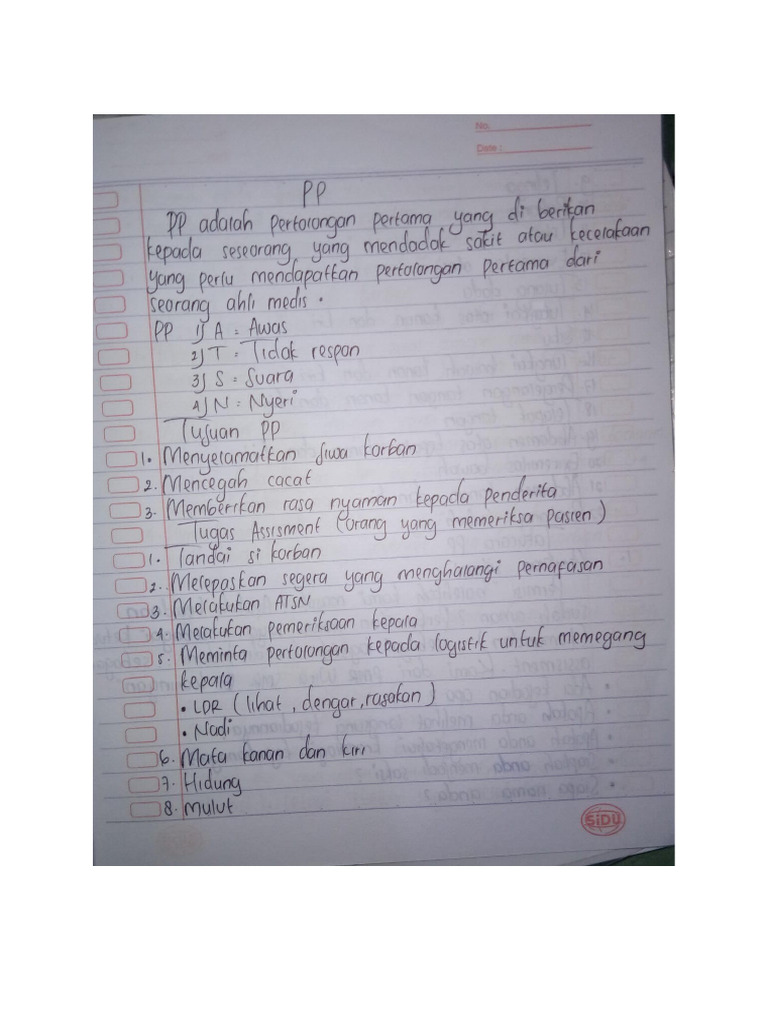 No.
Date :
PP
PP adalah pertolongan pertama yang di berikan
kepada seseorang, yang mendadak sakit atau kecelakaan
yang perlu mendapatkan pertolongan pertama dari
seorang ahli medis.
PP 1) A = Awas
2) T = Tidak respon
3) S = Suara
4) N = Nyeri
Tujuan PP
1. Menyelamatkan jiwa korban
2. Mencegah cacat
3. Memberikan rasa nyaman kepada penderita
Tugas Assisment (orang yang memeriksa pasien)
1. Tandai si korban
2. Melepaskan segera yang menghalangi pernafasan
3. Melakukan ATSN
4. Melakukan pemeriksaan kepala
5. Meminta pertolongan kepada logistik untuk memegang
kepala
• LDR (lihat, dengar, rasakan)
• Nadi
6. Mata kanan dan kiri
7. Hidung
8. Mulut
SiDU